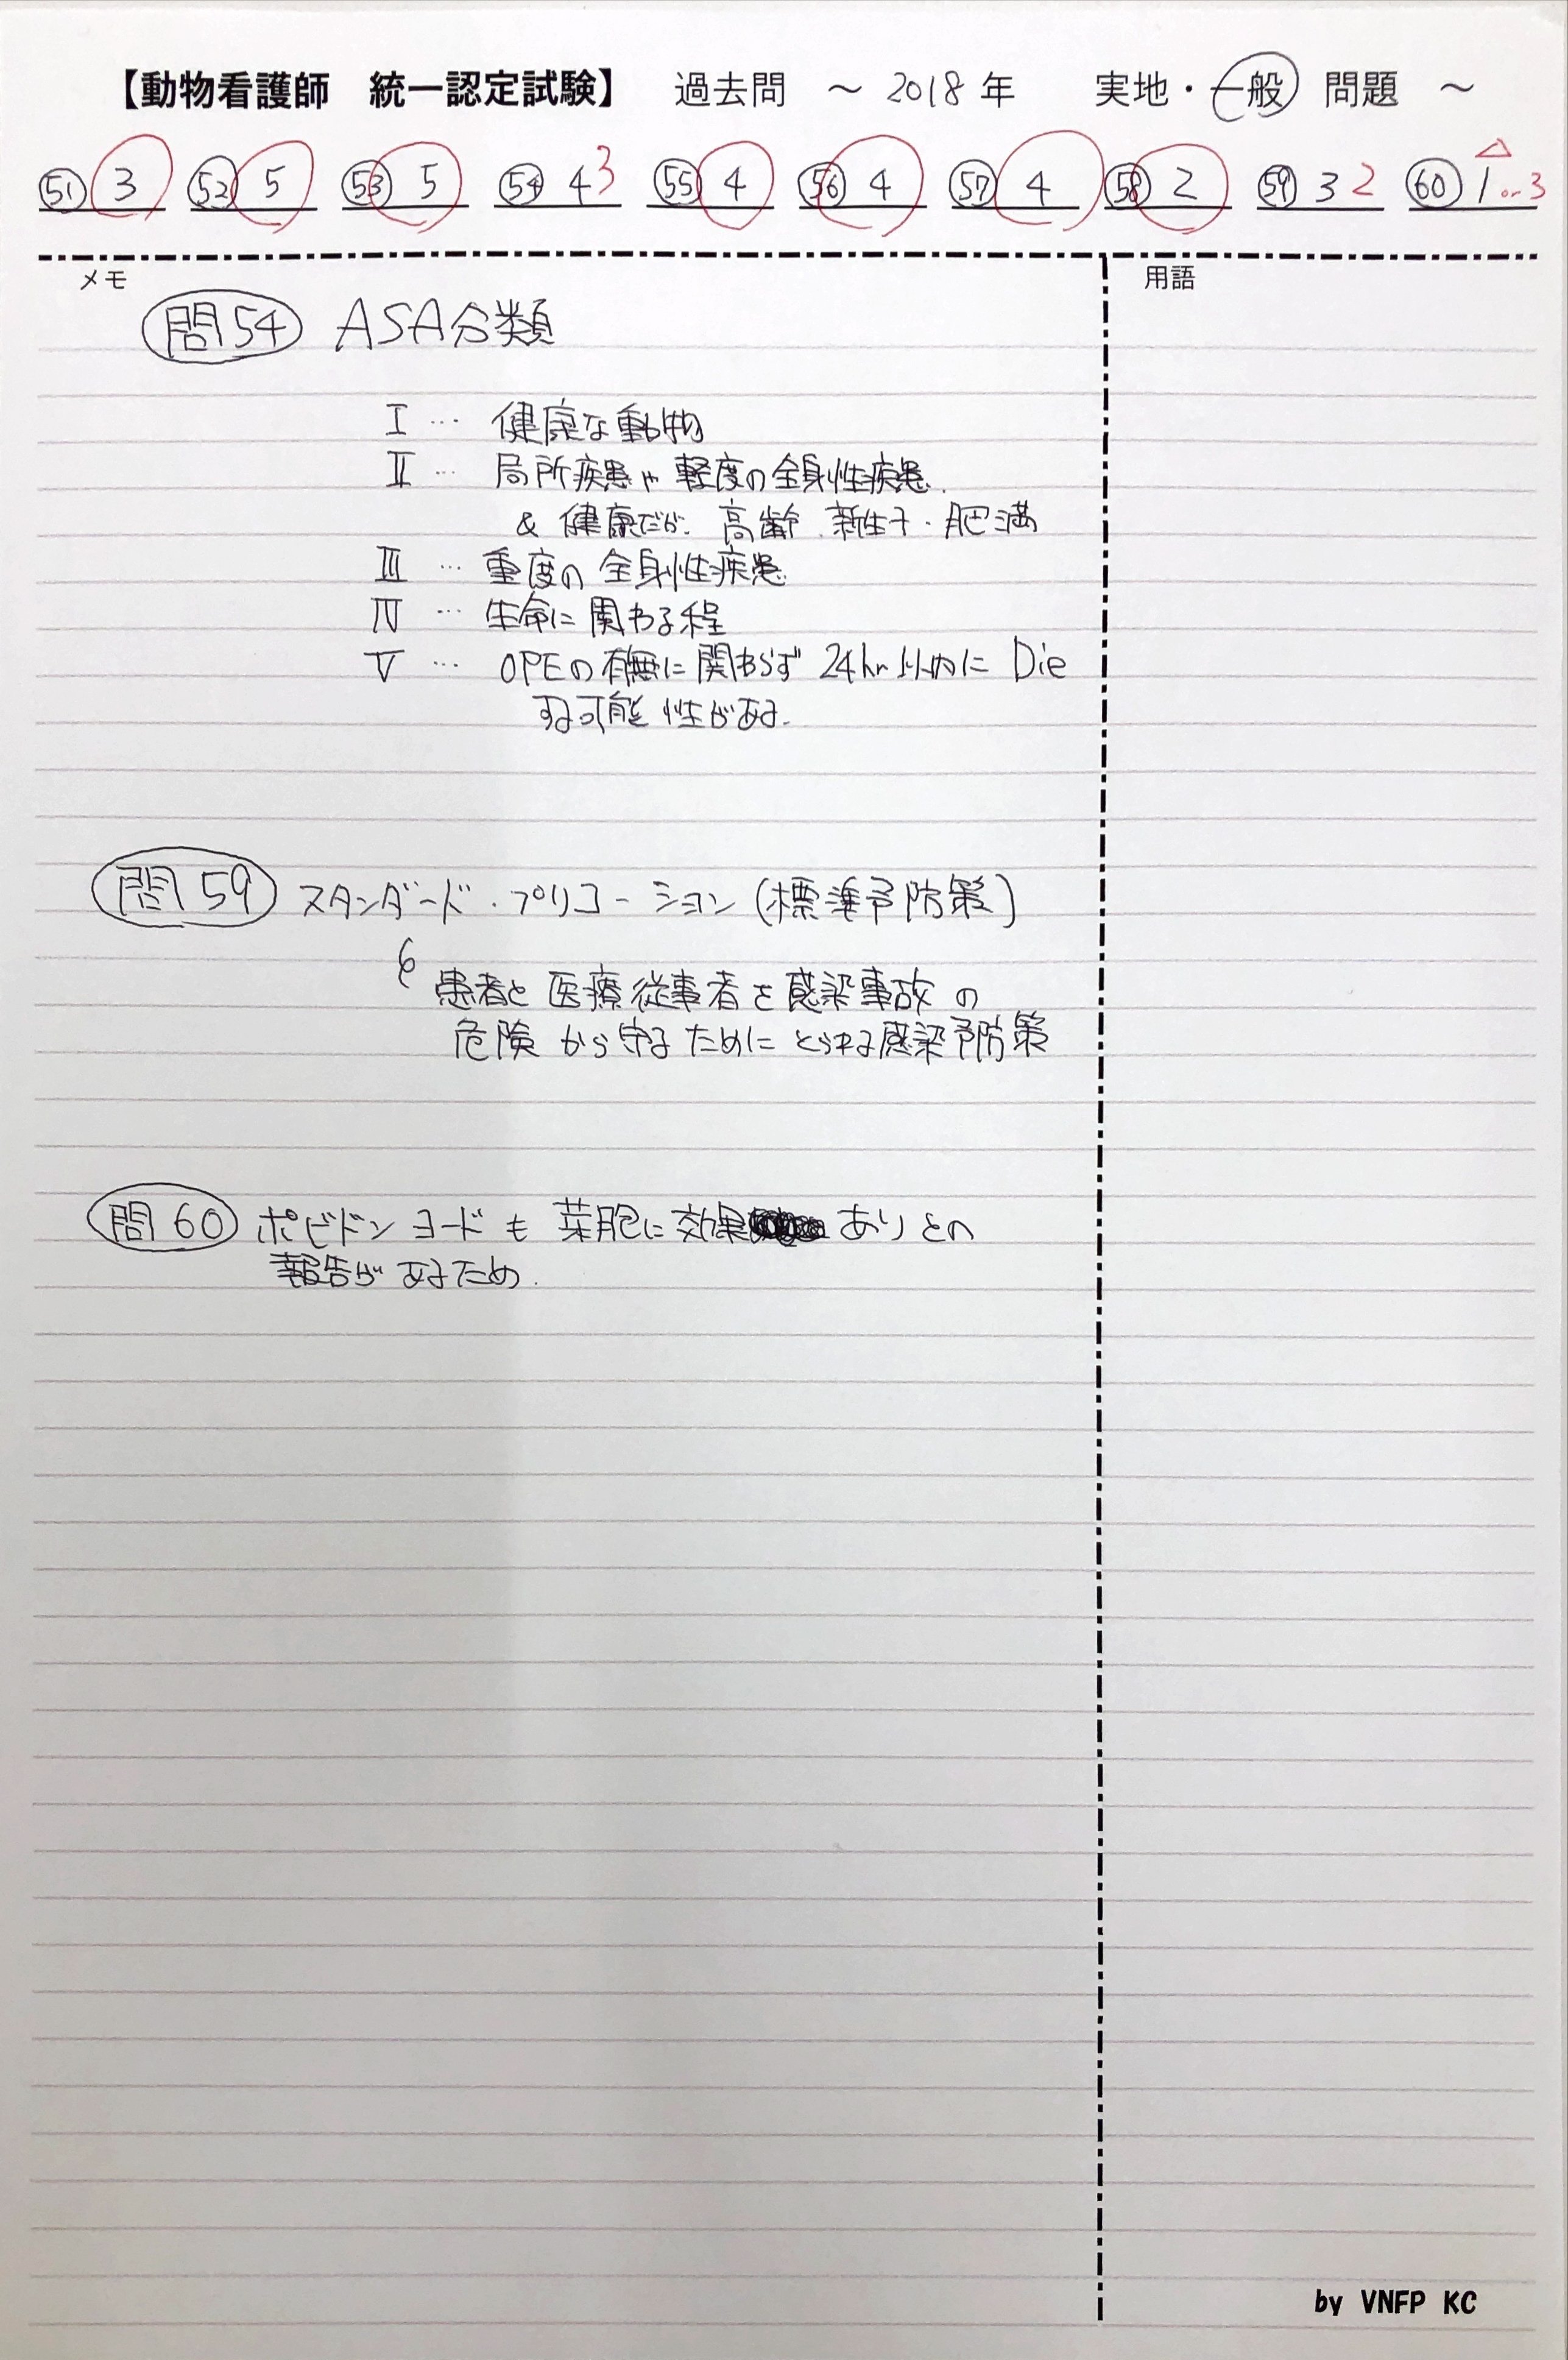 【動物看護師 統一認定試験】 過去問 ～ 2018 年 実地・一般 問題 ～
51 3 52 5 53 5 54 4 3 55 4 56 4 57 4 58 2 59 3 2 60 1 or 3
△
メモ 用語
問54 ASA分類
Ⅰ … 健康な動物
Ⅱ … 局所疾患や軽度の全身性疾患.
& 健康だが、高齢、新生子・肥満
Ⅲ … 重度の全身性疾患
Ⅳ … 生命に関わる程
Ⅴ … OPEの有無に関わらず 24hr以内に Die
する可能性がある.
問59 スタンダード・プリコーション(標準予防策)
患者と医療従事者を感染事故の
危険から守るためにとられる感染予防策
問60 ポビドンヨードも 芽胞に効果 ありとの
報告があるため.
by VNFP KC